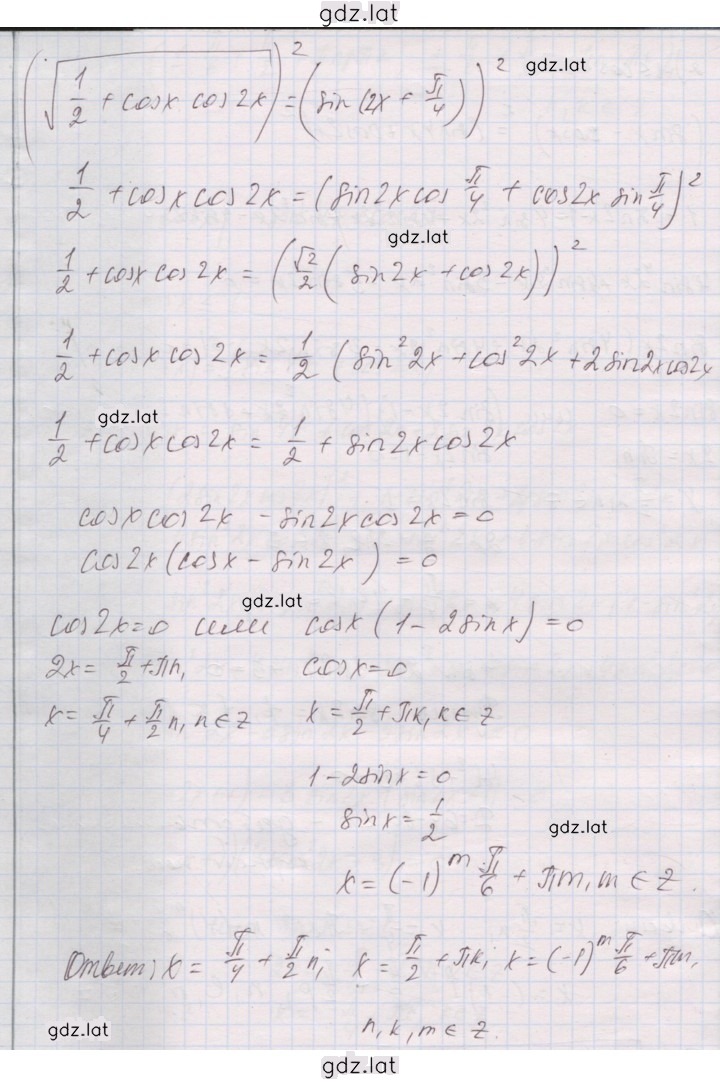 gdz.lat
(√(1/2 + cosx cos2x))² = (sin(2x + π/4))²
gdz.lat
1/2 + cosx cos2x = (sin2x cos π/4 + cos2x sin π/4)²
gdz.lat
1/2 + cosx cos2x = (√2/2 (sin2x + cos2x))²
1/2 + cosx cos2x = 1/2 (sin²2x + cos²2x + 2sin2x cos2x
gdz.lat
1/2 + cosx cos2x = 1/2 + sin2x cos2x
cosx cos2x - sin2x cos2x = 0
cos2x(cosx - sin2x) = 0
gdz.lat
cos2x=0 или cosx(1-2sinx)=0
2x= π/2 + πn, cosx=0
x= π/4 + π/2 n, n∈z x= π/2 + πk, k∈z
1-2sinx=0
sinx= 1/2
gdz.lat
x=(-1)^m π/6 + πm, m∈z.
Ответ: x= π/4 + π/2 n; x= π/2 + πk; x=(-1)^m π/6 + πm,
n, k, m∈z.
gdz.lat
gdz.lat